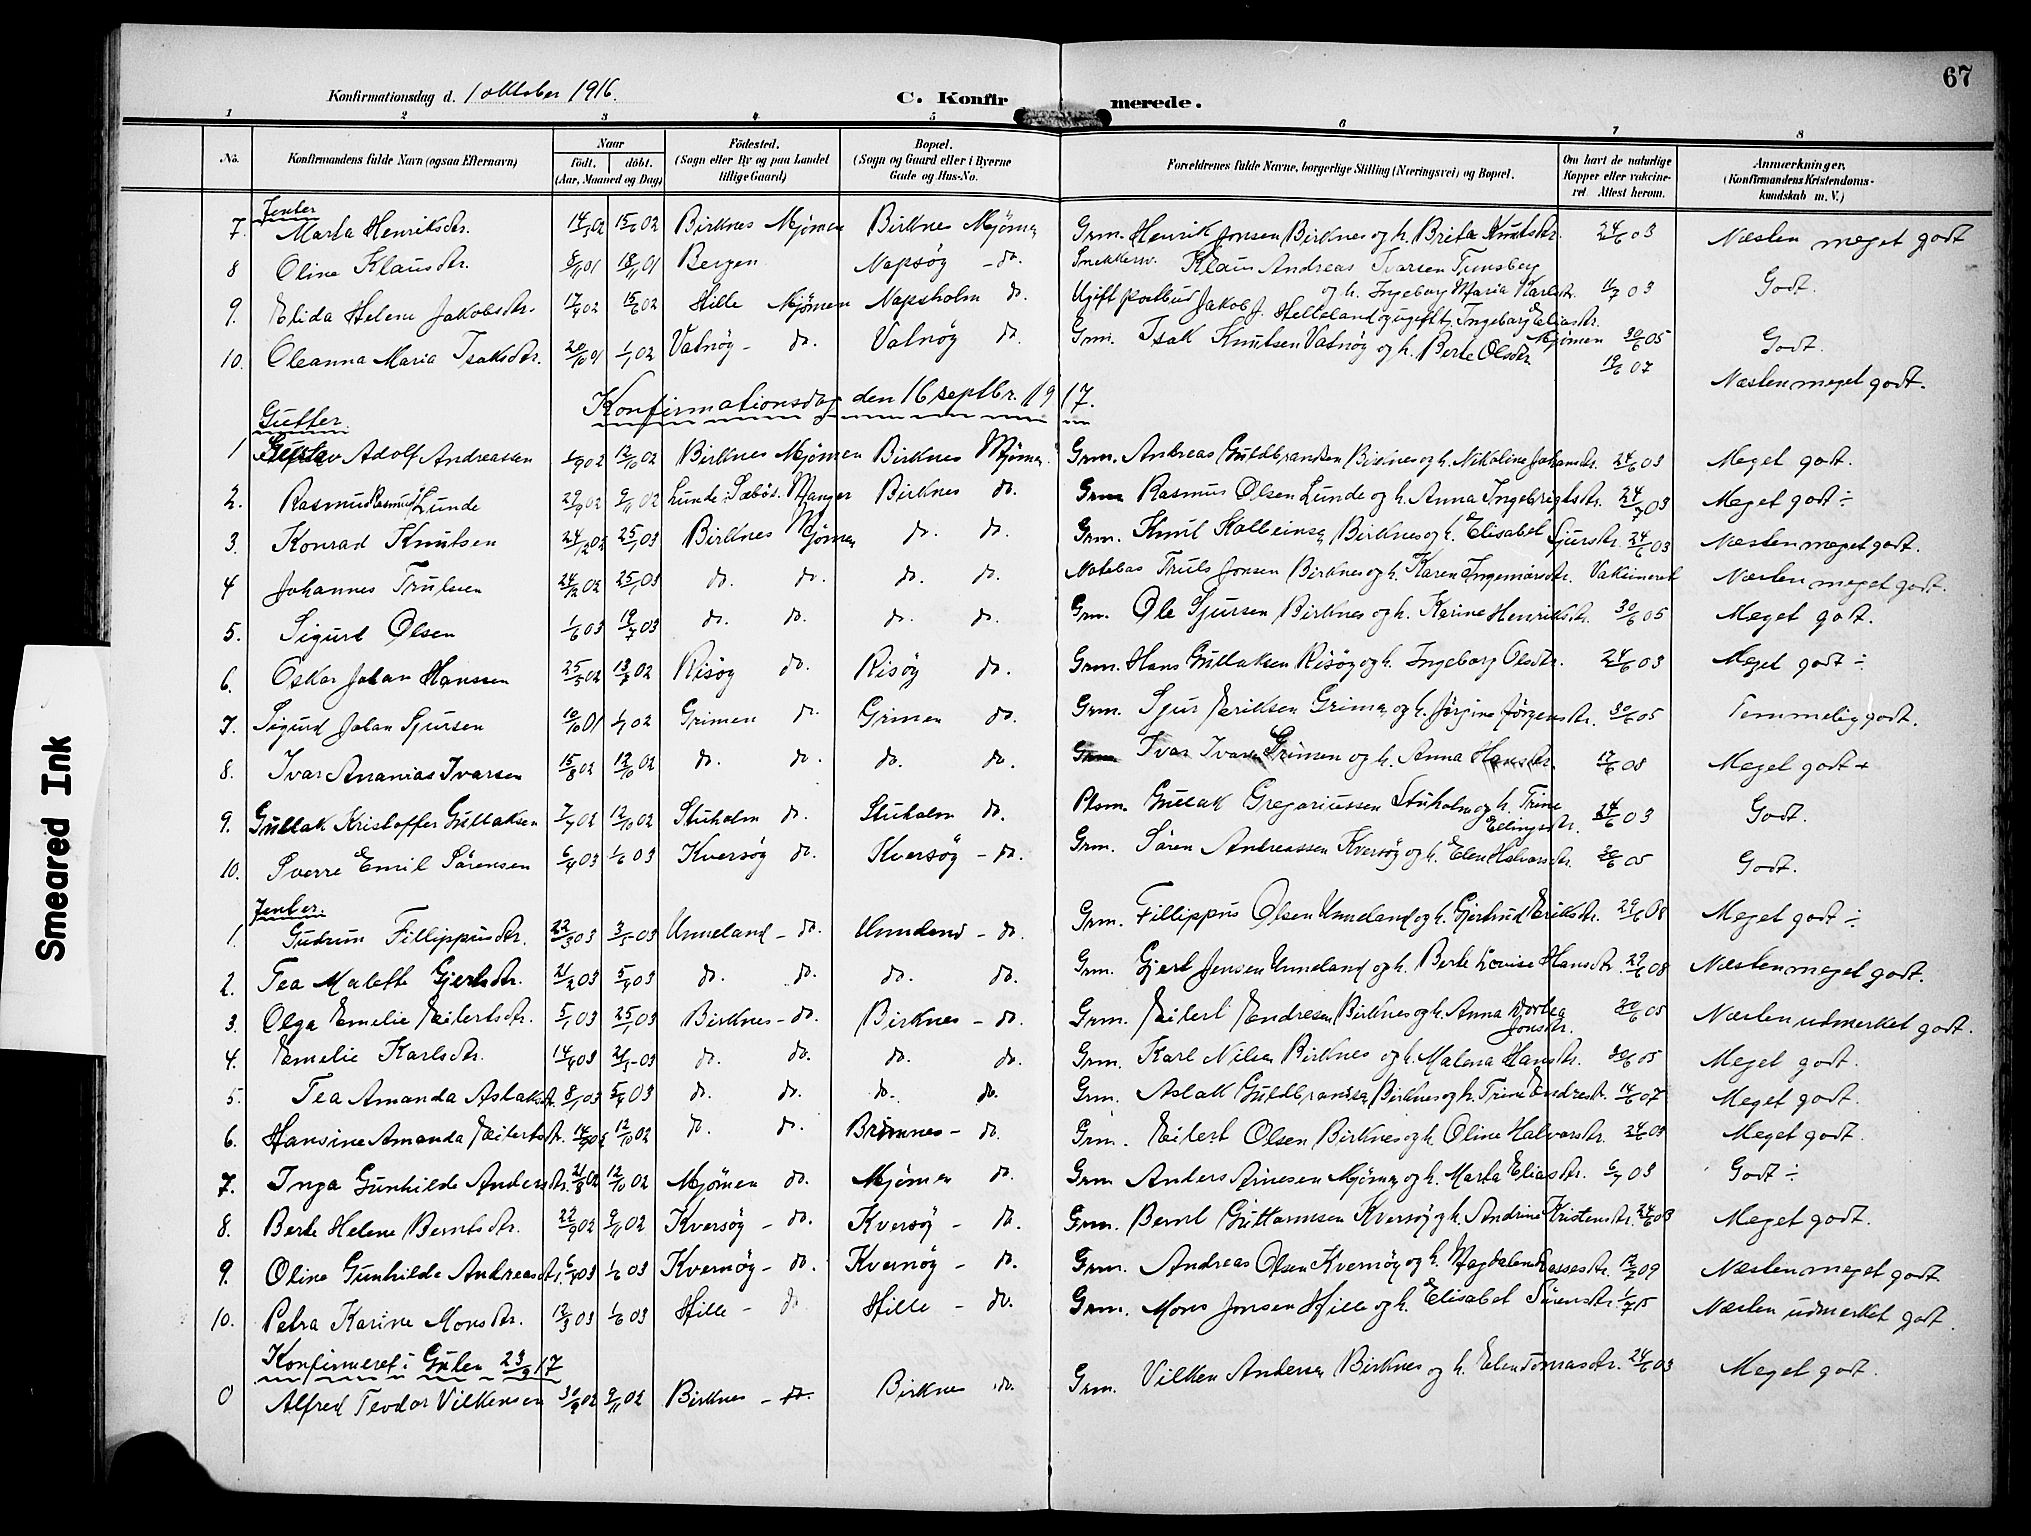 67
Konfirmationsdag d. 1 oktober 1916.
C. Konfirmerede.
1 2 3 4 5 6 7 8
No. Konfirmandens fulde Navn (ogsaa Efternavn) Naar födt, döbt. (Aar, Maaned og Dag) Födested. (Sogn eller By og paa Landet tillige Gaard) Bopæl. (Sogn og Gaard eller i Byerne Gade og Hus-No. Forældrenes fulde Navne, borgerlige Stilling (Næringsvei) og Bopæl. Om havt de naturlige Kopper eller vakcineret. Attest herom. Anmærkninger. (Konfirmandens Kristendomskundskab m. V.)
Jenter
7. Marta Henriksdtr. 14/5 02 15/6 02 Birknes Mjømen Birknes Mjømen Grm. Henrik Jonsen Birknes og h. Brita Knutsdtr. 24/6 03 Næsten meget godt
8 Oline Klausdtr. 01 01 Bergen Napsög - do. Snekkersv. Klaus Andreas Ivarsen Tunsberg og h. Ingeborg Maria Karlsdtr. 03 Godt.
9. Elida Helene Jakobsdtr. 17/4 02 15/6 02 Hille Mjömen Napsholm do. Ugift postbud Jakob J. Helleland og ugift Ingeborg Eliasdtr. Mjömen 30/6 05 Godt.
10. Oleanna Maria Isaksdtr. 20/10 01 1/1 02 Vatnög - do. Vatnög do. Grm. Isak Knutsen Vatnög og h. Berte Olsdtr. 19/6 07 Næsten meget godt.
Konfirmationsdag den 16 septbr. 1917.
Gutter.
1 Gustav Adolf Andreassen 02 12/10 02 Birknes Mjømen Birknes Mjømen Grm. Andreas Guldbrandsen Birknes og h. Nikoline Johansdtr. 24/6 03 Meget godt.
2. Rasmus Rasmus Lunde 29/9 02 9/11 02 Lunde, Sæbö s. Manger Birknes do. Grm Rasmus Olsen Lunde og h. Anna Ingebrigtsdtr. 24/7 03 Meget godt ÷
3. Konrad Knutsen 24/12 02 25/1 03 Birknes Mjømen do. do. Grm. Knut Halbeinsen Birknes og h. Elisabet Sjursdtr. 24/6 03 Næsten meget godt.
4 Johannes Trulsen 24/12 02 25/1 03 do. do. do. do. Notebas Truls Jonsen Birknes og h. Karen Ingemarsdtr. Vaksineret Næsten meget godt.
5. Sigurd Olsen 1/6 03 19/7 03 do. do. do. do. Grm. Ole Sjursen Birknes og h. Karine Henriksdtr. 30/6 05 Meget godt.
6. Oskar Johan Hanssen 25/5 02 02 Risög do. Risög do. Grm. Hans Gullaksen Risög og h. Ingeborg Olsdtr. 24/6 03 Meget godt ÷
7. Sigurd Johan Sjursen 10/10 01 1/1 02 Grimen do Grimen do. Grm. Sjur Eriksen Grimen og h. Jørgine Jörgensdtr. 30/6 05 Temmelig godt.
8. Ivar Ananias Ivarsen 15/8 02 12/10 02 do. do. do. do. Grm Ivar Ivarsen Grimen og h. Anna Hansdtr. 17/6 08 Meget godt +
9. Gullak Kristoffer Gullaksen 7/7 02 12/10 02 Stuholm do. Stuholm do. Plsm. Gullak Gregoriussen Stuholm og h. Trine Ellingsdtr. 24/6 03 Godt.
10. Sverre Emil Sörensen 6/4 03 1/6 03 Kversög do. Kversög - do. Grm. Sören Andreassen Kversög og h. Elen Halvorsdtr. 30/6 05 Godt.
Jenter.
1. Gudrun Fillippusdtr. 22/3 03 3/5 03 Unneland - do. Unneland - do. Grm. Fillippus Olsen Unneland og h. Gjertrud Eriksdtr. 29/6 08 Meget godt ÷
2. Tea Malette Gjertsdtr. 21/2 03 5/4 03 do. do. do. do. Grm. Gjert Jensen Unneland og h. Berte Lovise Hansdtr. 29/6 08 Næsten meget godt.
3. Olga Emelie Eilertsdtr. 5/1 03 25/1 03 Birknes - do. Birknes - do. Grm. Eilert Endresen Birknes og h. Anna Dortea Jonsdtr. 30/6 05 Næsten udmerket godt.
4. Emelie Karlsdtr. 14/4 03 21/5 03 do. do. do. do. Grm. Karl Nilsen Birknes og h. Malena Hansdtr. 30/6 05 Meget godt.
5. Tea Amanda Aslaksdtr. 8/1 03 5/4 03 do. do. do. do. Grm. Aslak Guldbrandsen Birknes og h. Trine Endresdtr. 14/6 07 Meget godt.
6. Hansine Amanda Eilertsdtr. 14/9 02 12/10 02 do. do. Birknes - do. Grm. Eilert Olsen Birknes og h. Oline Halvorsdtr. 24/6 03 Meget godt.
7. Inga Gunhilde Andersdtr. 21/8 02 12/10 02 Mjömen do. Mjömen do. Grm Anders Arnesen Mjömen og h. Marta Eliasdtr. 6/7 03 Godt ÷
8. Berte Helene Berntsdtr. 22/9 02 9/11 02 Kversög - do. Kversög - do. Grm. Bernt Guttormsen Kversög og h. Andrine Kristensdtr. 24/6 03 Meget godt.
9. Oline Gunhilde Andreasdtr. 6/4 03 1/6 03 Kvernög - do. Kvernög - do. Grm. Andreas Olsen Kvernög og h. Magdalena Lassesdtr. 12/2 09 Næsten meget godt
10. Petra Karine Monsdtr. 12/3 03 1/6 03 Hille - do Hille - do. Grm. Mons Jonsen Hille og h. Elisabet Sörensdtr. 1/7 15 Næsten udmerket godt.
Konfirmeret i Gulen 23/9 17
0 Alfred Teodor Vilkensen 30/9 02 9/11 02 Birknes - do. Birknes do. Grm. Vilken Andersen Birknes og h. Elen Tomasdtr. 24/6 03 Meget godt.
Smeared Ink